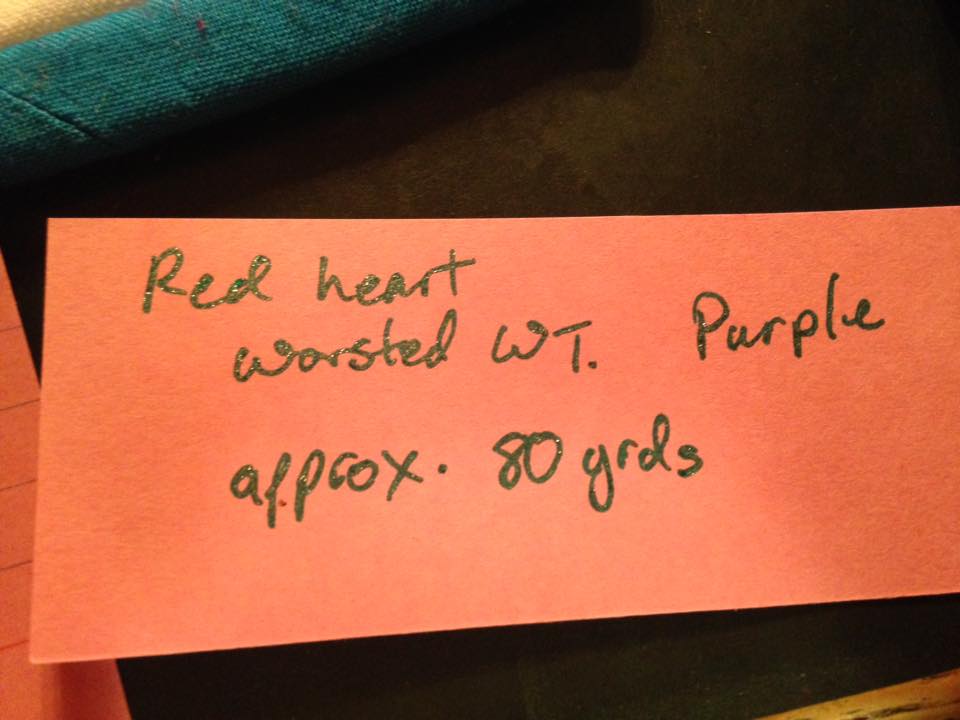 Red heart
worsted WT. Purple
approx. 80 yrds